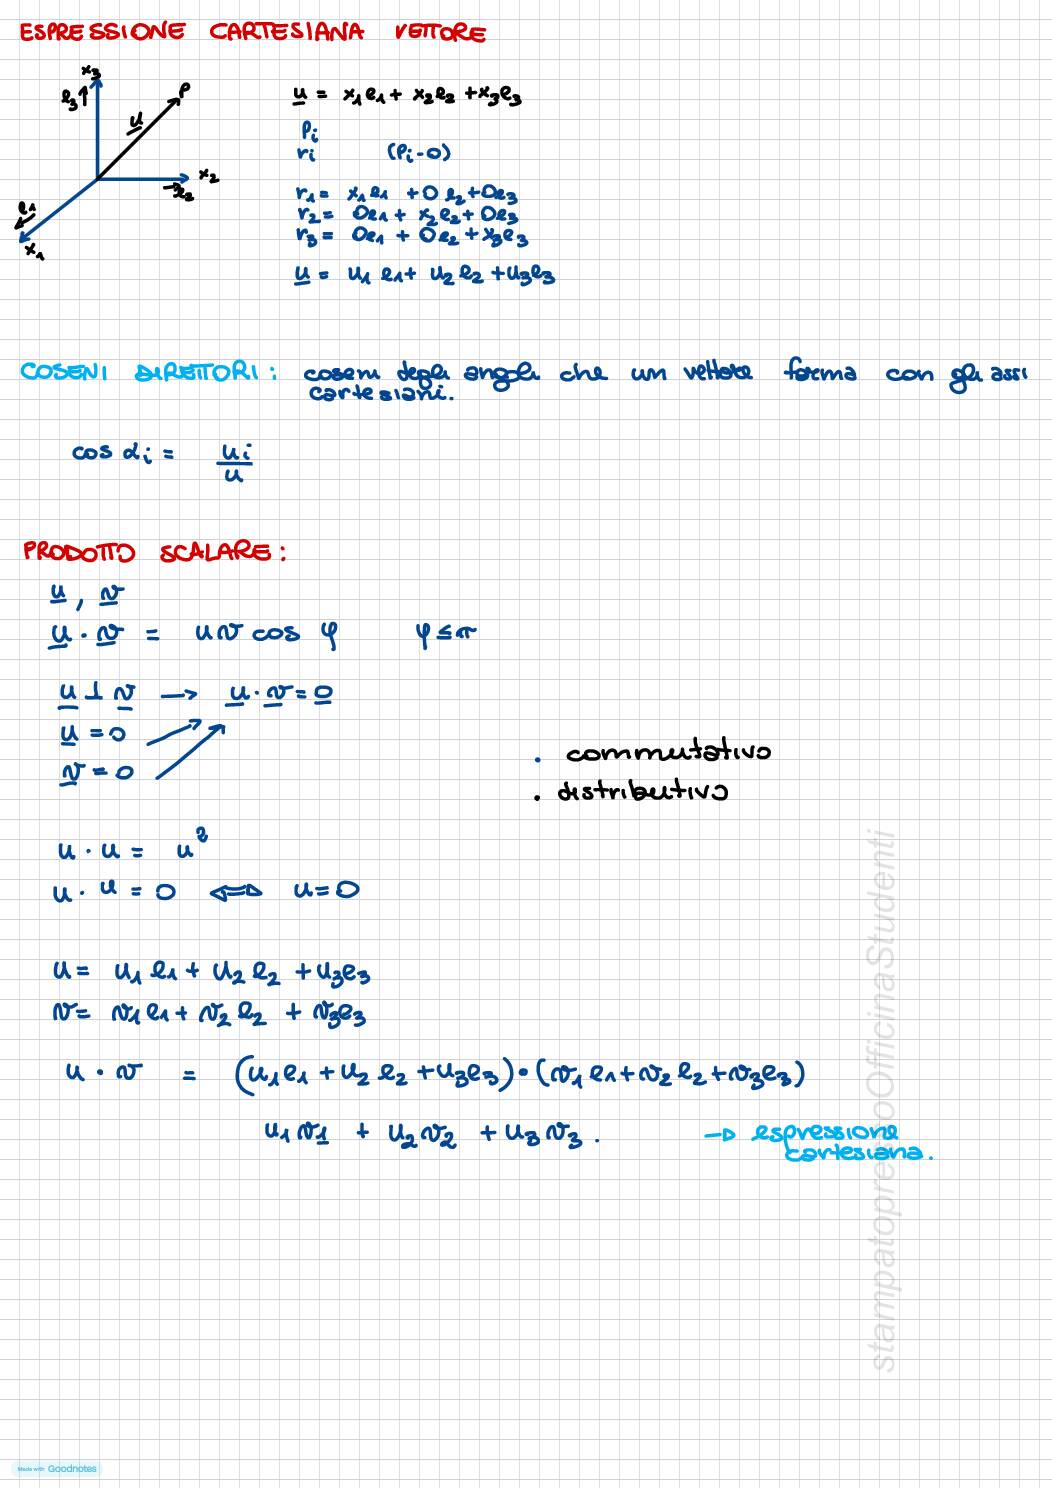 ESPRESSIONE CARTESIANA VETTORE
x3
e3
P
u
x2
e2
e1
x1
u = x1 e1 + x2 e2 + x3 e3
Pi
ri (Pi - O)
r1 = x1 e1 + 0 e2 + 0 e3
r2 = 0 e1 + x2 e2 + 0 e3
r3 = 0 e1 + 0 e2 + x3 e3
u = u1 e1 + u2 e2 + u3 e3
COSENI DIRETTORI: coseni degli angoli che un vettore forma con gli assi
cartesiani.
cos αi = ui / u
PRODOTTO SCALARE:
u , v
u · v = u v cos φ φ ≤ π
u ⊥ v → u · v = 0
u = 0
v = 0
· commutativo
· distributivo
u · u = u²
u · u = 0 ⇔ u = 0
u = u1 e1 + u2 e2 + u3 e3
v = v1 e1 + v2 e2 + v3 e3
u · v = (u1 e1 + u2 e2 + u3 e3) · (v1 e1 + v2 e2 + v3 e3)
u1 v1 + u2 v2 + u3 v3 . → espressione
cartesiana.
stampatopressoOfficinaStudenti
Made with Goodnotes